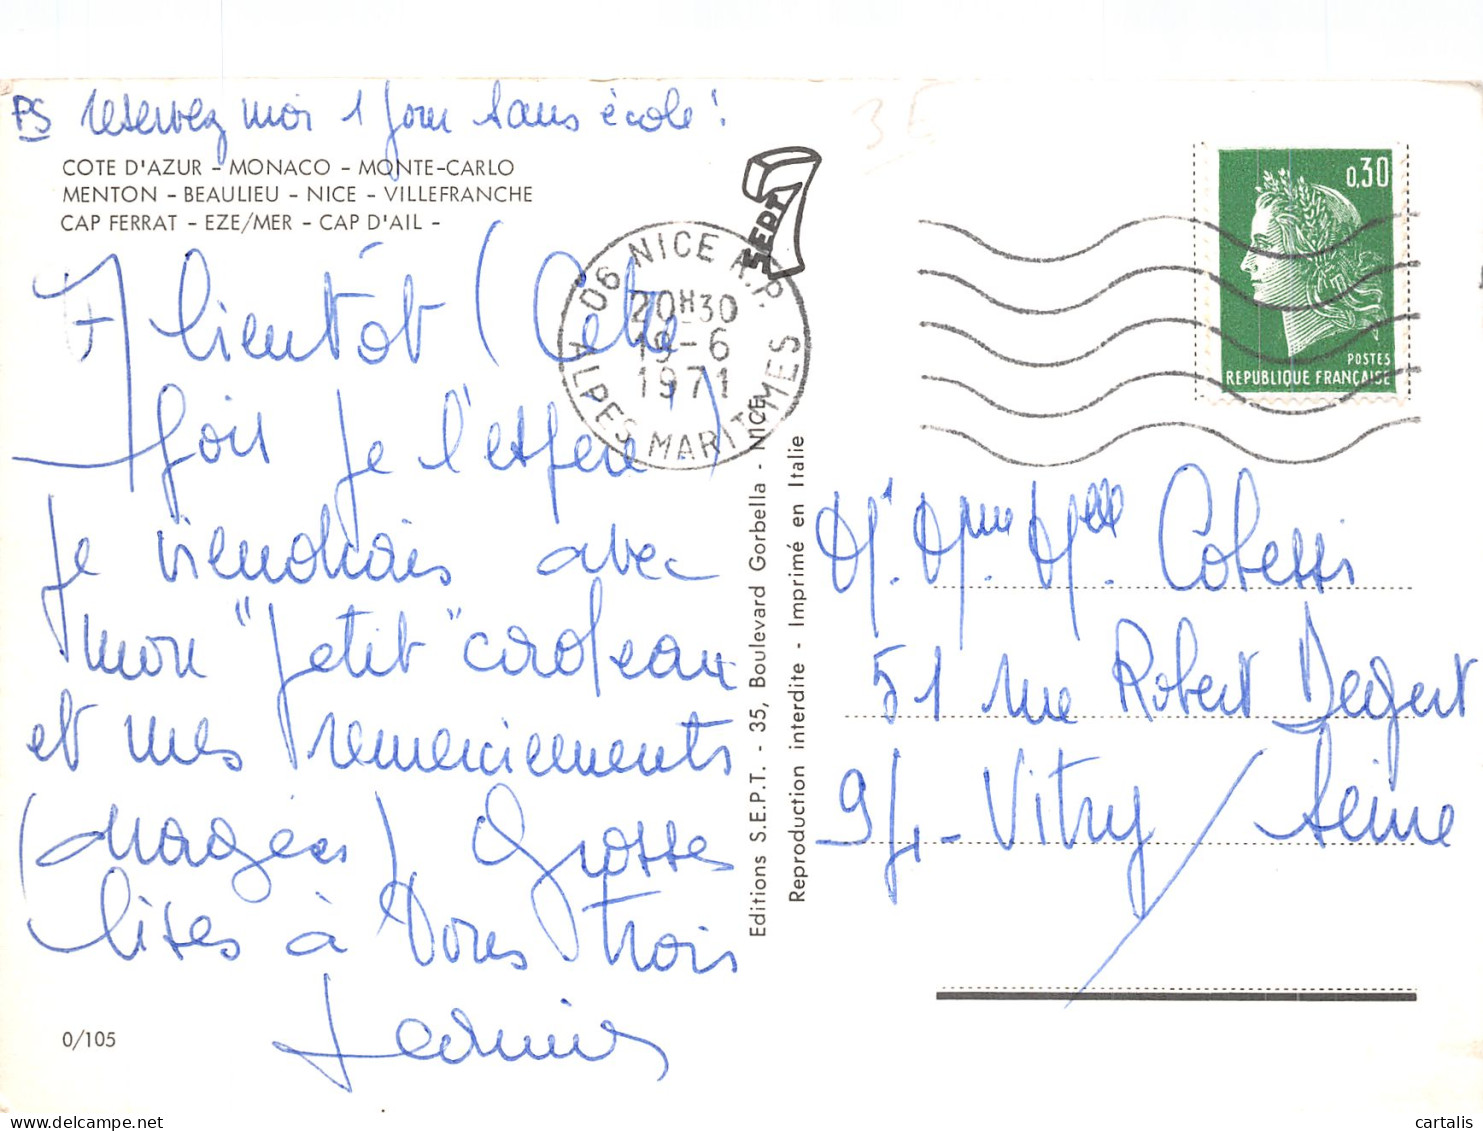 PS reservez moi 1 jour sans école !
COTE D'AZUR - MONACO - MONTE-CARLO
MENTON - BEAULIEU - NICE - VILLEFRANCHE
CAP FERRAT - EZE/MER - CAP D'AIL -
A bientôt (Cette
fois je l'espère)
je viendrais avec
mon "petit" cadeau
et mes remerciements
(dragées) Grosses
bises à Vous trois
0/105
SEPT
06 NICE A.P.
20H30
19-6
1971
ALPES MARITIMES
Editions S.E.P.T. - 35, Boulevard Gorbella - NICE
Reproduction interdite - Imprimé en Italie
0,30
POSTES
REPUBLIQUE FRANÇAISE
Mr. Mme. Melle.
51 rue Robert Degert
94 - Vitry / Seine
35
cartalis
delcampe.net